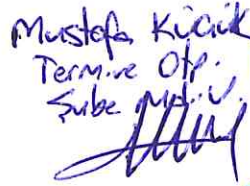 Mustafa Küçük
Termine Otp.
Şube Müd. V.